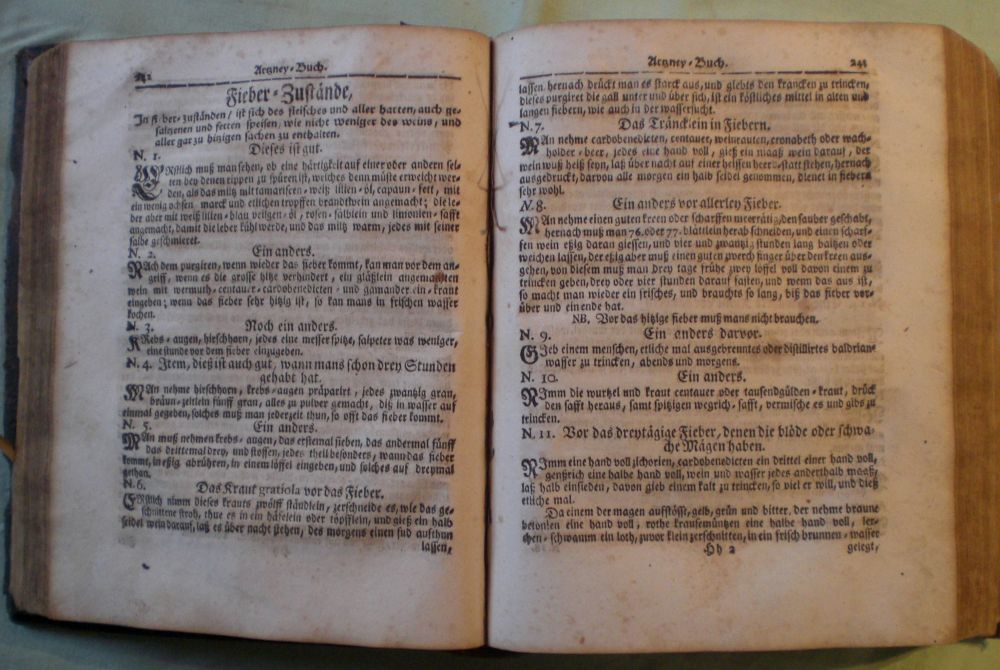 Artzney-Buch.
Fieber-Zustände,
In fieber-zuständen / ist sich des fleisches und aller harten, auch ge-
saltzenen und fetten speisen, wie nicht weniger des weins, und
aller gar zu hitzigen sachen zu enthalten.
N. 1. Dieses ist gut.
ERstlich muß man sehen, ob eine härtigkeit auf einer oder andern sei-
ten bey denen rippen zu spüren ist, welches denn müste erweicht wer-
den, als das miltz mit tamarisken- weiß lilien-öl, capaun-fett, mit
ein wenig ochsen-marck und etlichen tropffen brandtewein angemacht; die le-
ber aber mit weiß lilien-blau veilgen-öl, rosen-sälblein und limonien-safft
angemacht, damit die leber kühl werde, und das miltz warm, jedes mit seiner
salbe geschmieret.
N. 2. Ein anders.
NAch dem purgiren, wenn wieder das fieber kommt, kan man vor dem an-
griff, wenn es die grosse hitze verhindert, ein gläßlein angemachten
wein mit wermuth-centauer-cardobenedicten- und gamander-ein-kraut
eingeben; wenn das fieber sehr hitzig ist, so kan mans in frischen wasser
kochen.
N. 3. Noch ein anders.
KRebs-augen, hirschhorn, jedes eine messerspitze, salpeter was weniger,
eine stunde vor dem fieber einzugeben.
N. 4. Item, dieß ist auch gut, wann mans schon drey Stunden
gehabt hat.
MAn nehme hirschhorn, krebs-augen präparirt, jedes zwantzig gran,
bräun-zeitlein fünff gran, alles zu pulver gemacht, diß in wasser auf
einmal gegeben, solches muß man jederzeit thun, so offt das fieber kommt.
N. 5. Ein anders.
MAn muß nehmen krebs-augen, das erstemal sieben, das andermal fünff
das drittemal drey, und stossen, jedes theil besonders, wann das fieber
kommt, in eßig abrühren, in einem löffel eingeben, und solches auf dreymal
gethan.
N. 6. Das Kraut gratiola vor das Fieber.
ERstlich nimm dieses krauts zwölff ständlein, zerschneide es, wie das ge-
schnittene stroh, thue es in ein häfelein oder töpfflein, und gieß ein halb
seidel wein darauf, laß es über nacht stehen, des morgens einen sud aufthun
lassen,
Artzney-Buch. 241
lassen, hernach drückt man es starck aus, und giebts den krancken zu trincken,
dieses purgiret die gall unter und über sich, ist ein köstliches mittel in alten und
langen fiebern, wie auch in der wassersucht.
N. 7. Das Träncklein in Fiebern.
MAn nehme cardobenedicten, centauer, weinrauten, cronabeth oder wach-
holder-beer, jedes eine hand voll, gieß ein maaß wein darauf, der
wein muß heiß seyn, laß über nacht auf einer heissen heerdstatt stehen, hernach
ausgedruckt, darvon alle morgen ein halb seidel genommen, dienet in fiebern
sehr wohl.
N. 8. Ein anders vor allerley Fieber.
MAn nehme einen guten kreen oder scharffen meerrätig, den sauber geschabt,
hernach muß man 76. oder 77. blättlein herab schneiden, und einen scharf-
fen wein eßig daran giessen, und vier und zwantzig stunden lang baitzen oder
weichen lassen, der eßig aber muß einen guten zwerch finger über den kreen aus-
gehen, von diesem muß man drey tage frühe zwey löffel voll davon einem zu
trincken geben, drey oder vier stunden darauf fasten, und wenn das aus ist,
so macht man wieder ein frisches, und brauchts so lang, biß das fieber vor-
über und ein ende hat.
NB. Vor das hitzige fieber muß mans nicht brauchen.
N. 9. Ein anders darvor.
GIeb einem menschen, etliche mal ausgebrenntes oder distillirtes baldrian-
wasser zu trincken, abends und morgens.
N. 10. Ein anders.
NImm die wurtzel und kraut centauer oder tausendgülden-kraut, drück
den safft heraus, samt spitzigen wegrich-safft, vermische es und gibs zu
trincken.
N. 11. Vor das dreytägige Fieber, denen die blöde oder schwa-
che Mägen haben.
NImm eine hand voll zichorien, cardobenedicten ein drittel einer hand voll,
genßrich eine halbe hand voll, wein und wasser jedes anderthalb maaß,
laß halb einsieden, davon gieb einem kalt zu trincken, so viel er will, und dieß
etliche mal.
Da einem der magen aufstösst, gelb, grün und bitter, der nehme braune
betonien eine hand voll, rothe krausemüntzen eine halbe hand voll, ler-
chen-schwaum ein loth, zuvor klein zerschnitten, in ein frisch brunnen-wasser
Hh 2 gelegt,